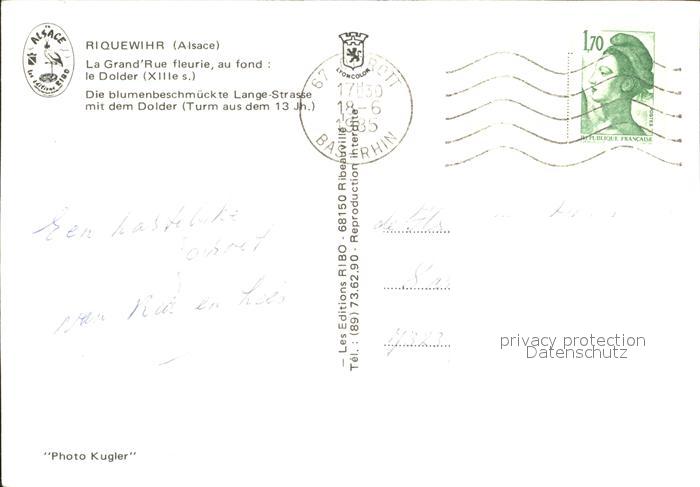 ALSACE
les éditions RIBO
RIQUEWIHR (Alsace)
La Grand'Rue fleurie, au fond :
le Dolder (XIIIe s.)
Die blumenbeschmückte Lange-Strasse
mit dem Dolder (Turm aus dem 13 Jh.)
LYONCOLOR
67
17H30
18-6
1985
BAS RHIN
1,70
POSTES
REPUBLIQUE FRANÇAISE
Een hartelijke
van Ria en Kees
— Les Editions RIBO - 68150 Ribeauvillé —
Tél. : (89) 73.62.90 - Reproduction interdite
privacy protection
Datenschutz
"Photo Kugler"